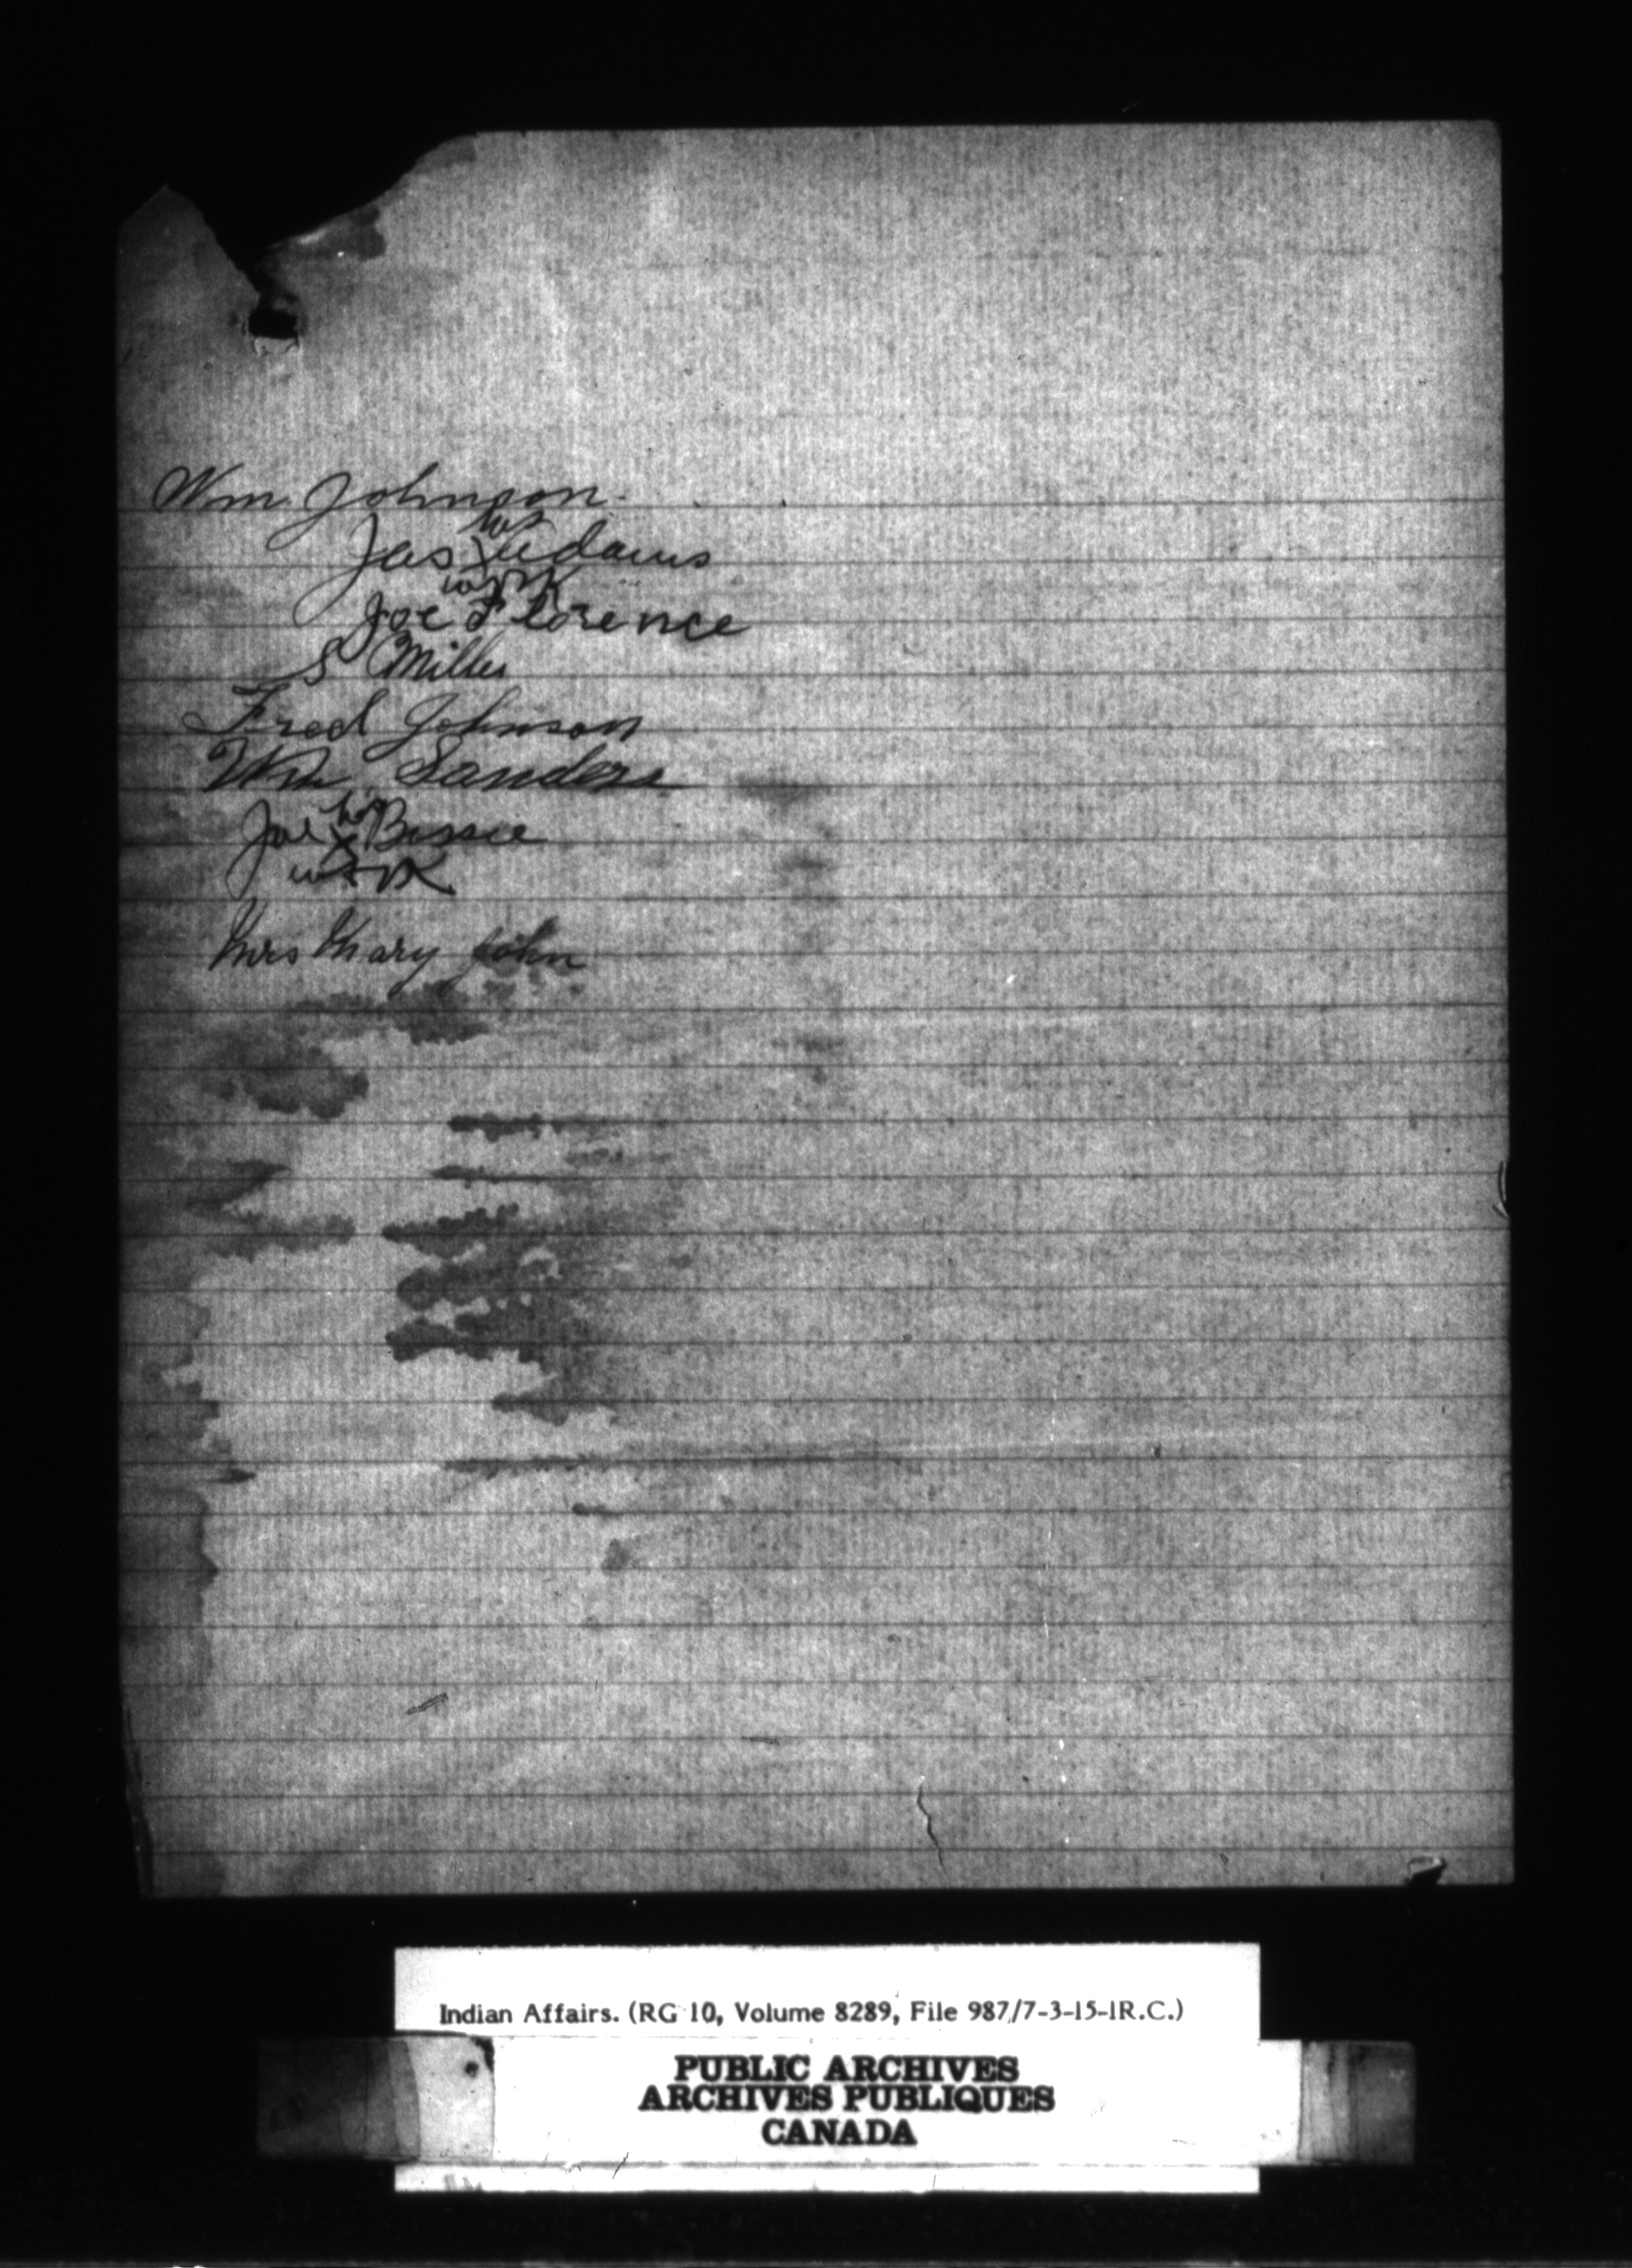 Wm. Johnson.
his
Jas X Adams
mark
Joe Florence
S Miller
Fred Johnson
Wm Sanders
his
Joe X Bissie
mark
Mrs Mary John
Indian Affairs. (RG 10, Volume 8289, File 987/7-3-15-1R.C.)
PUBLIC ARCHIVES
ARCHIVES PUBLIQUES
CANADA